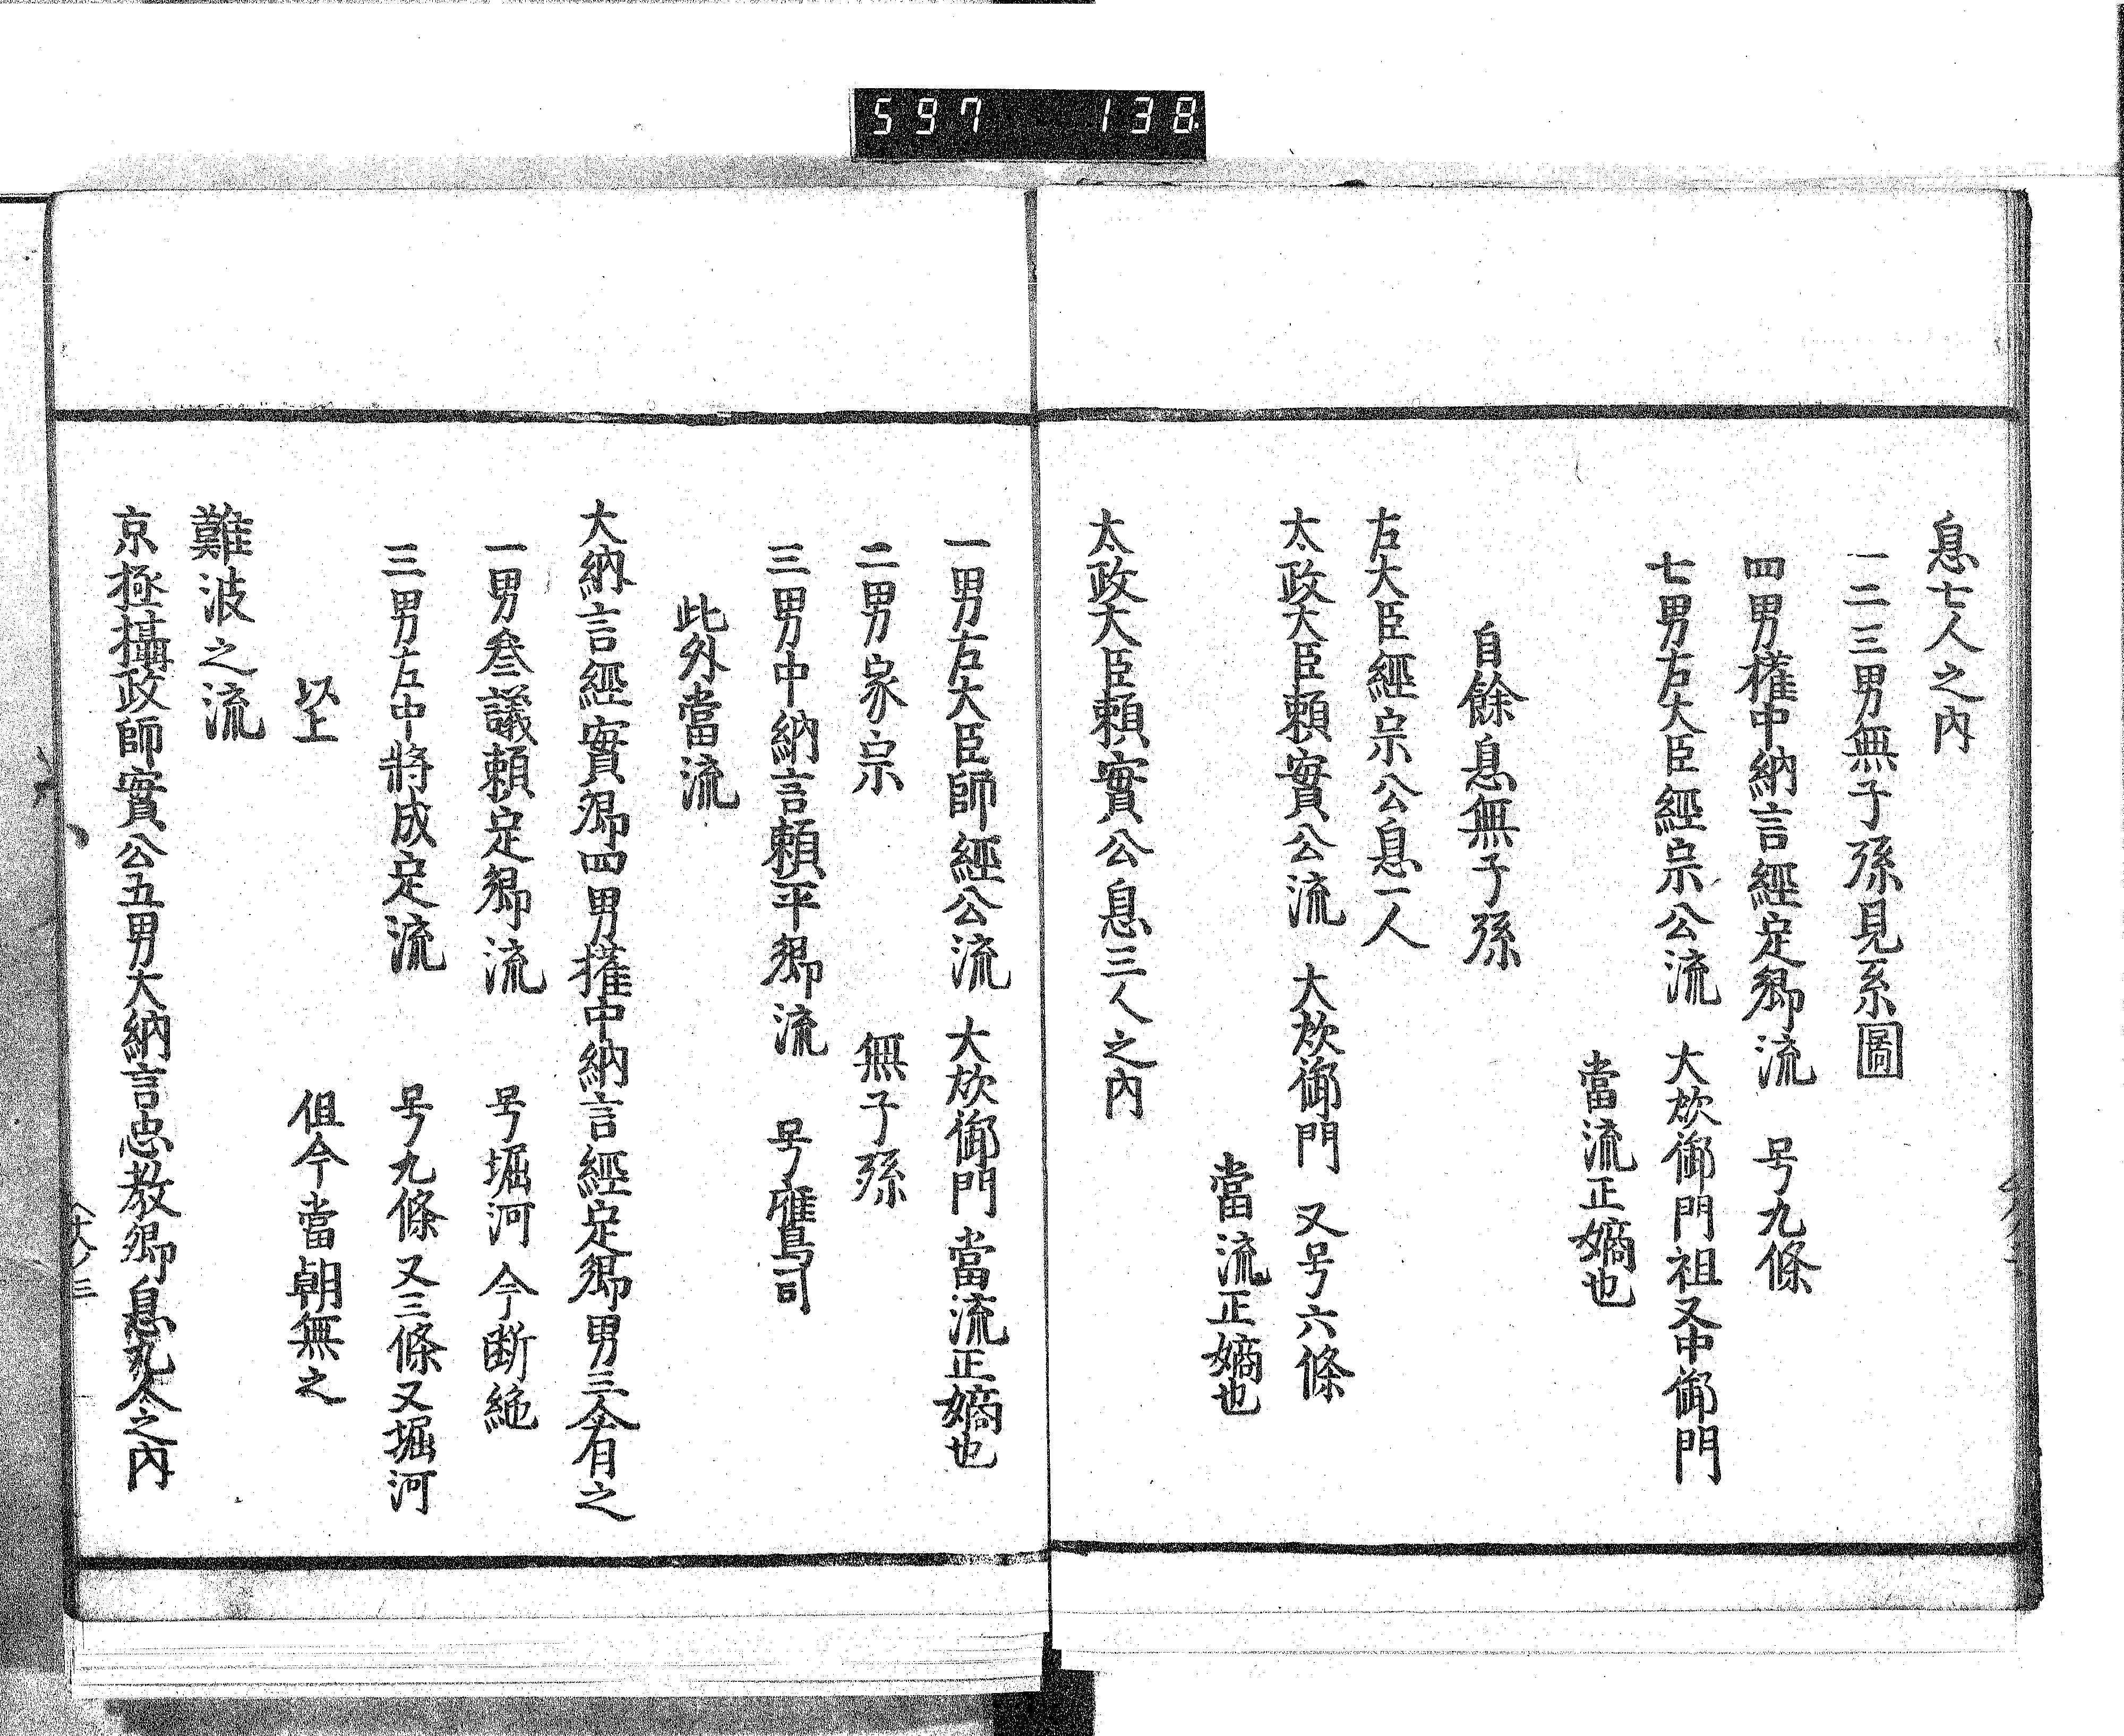 597 138
息七人之內
一二三男無子孫見系圖
四男權中納言經定卿流 号九條
七男左大臣經宗公流 大炊御門祖又中御門
當流正嫡也
自餘息無子孫
左大臣經宗公息一人
太政大臣賴實公流 大炊御門 又号六條
當流正嫡也
太政大臣賴實公息三人之內
一男右大臣師經公流 大炊御門 當流正嫡也
二男家宗 無子孫
三男中納言賴平卿流 号鷹司
此外當流
大納言經實卿四男權中納言經定卿男三人有之
一男叅議賴定卿流 号堀河 今断絶
三男左中將成定流 号九條 又三條又堀河
以上 但今當朝無之
難波之流
京極攝政師實公五男大納言忠教卿息九人之內